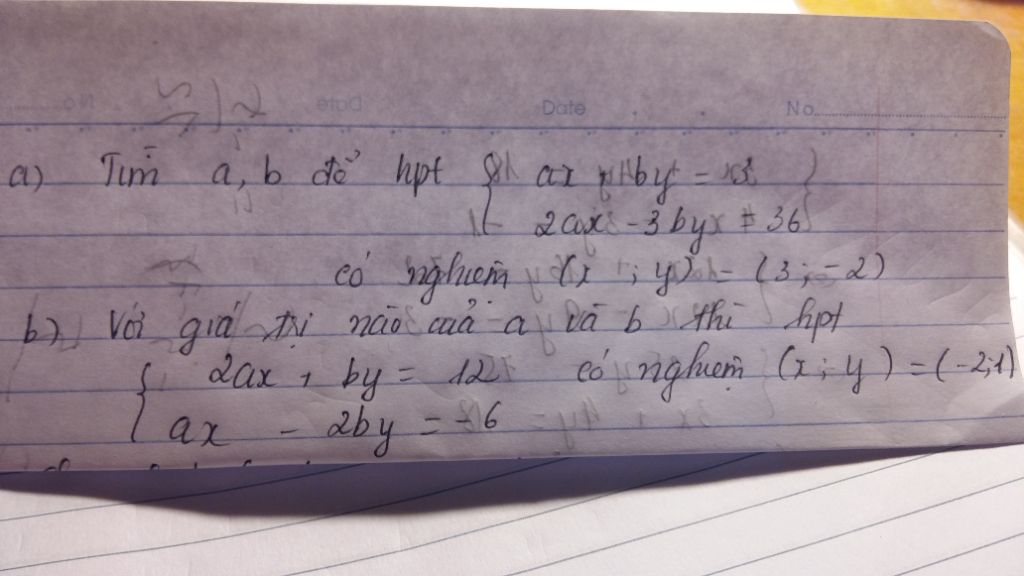 Date No
a) Tìm a, b để hpt { ax + by = 3
2ax - 3by = 36
có nghiệm (x ; y) = (3; -2)
b) Với giá trị nào của a và b thì hpt
{ 2ax + by = 12 có nghiệm (x; y) = (-2; 1)
ax - 2by = -6